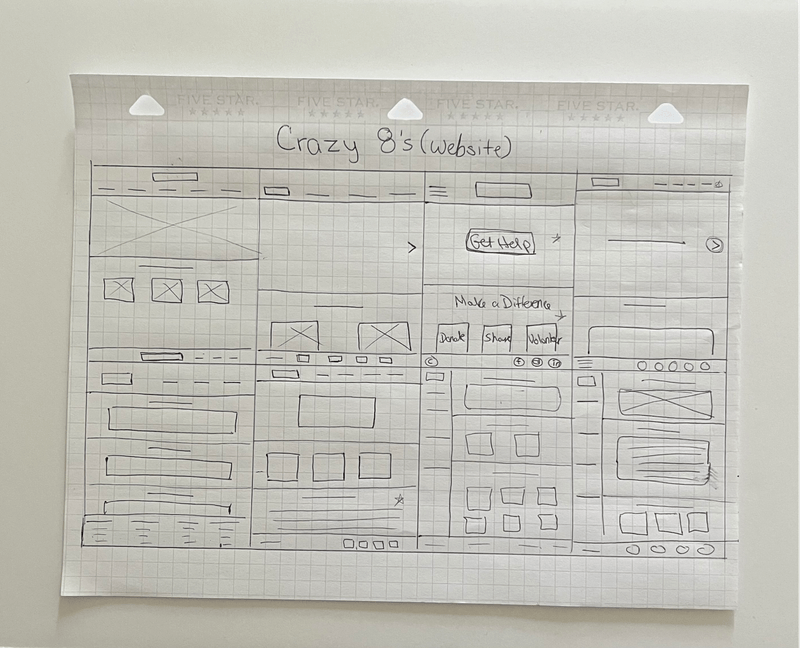 FIVE STAR. FIVE STAR. FIVE STAR. FIVE STAR.
Crazy 8's (website)
Get Help
Make a Difference
Donate Share Volunteer
c f in